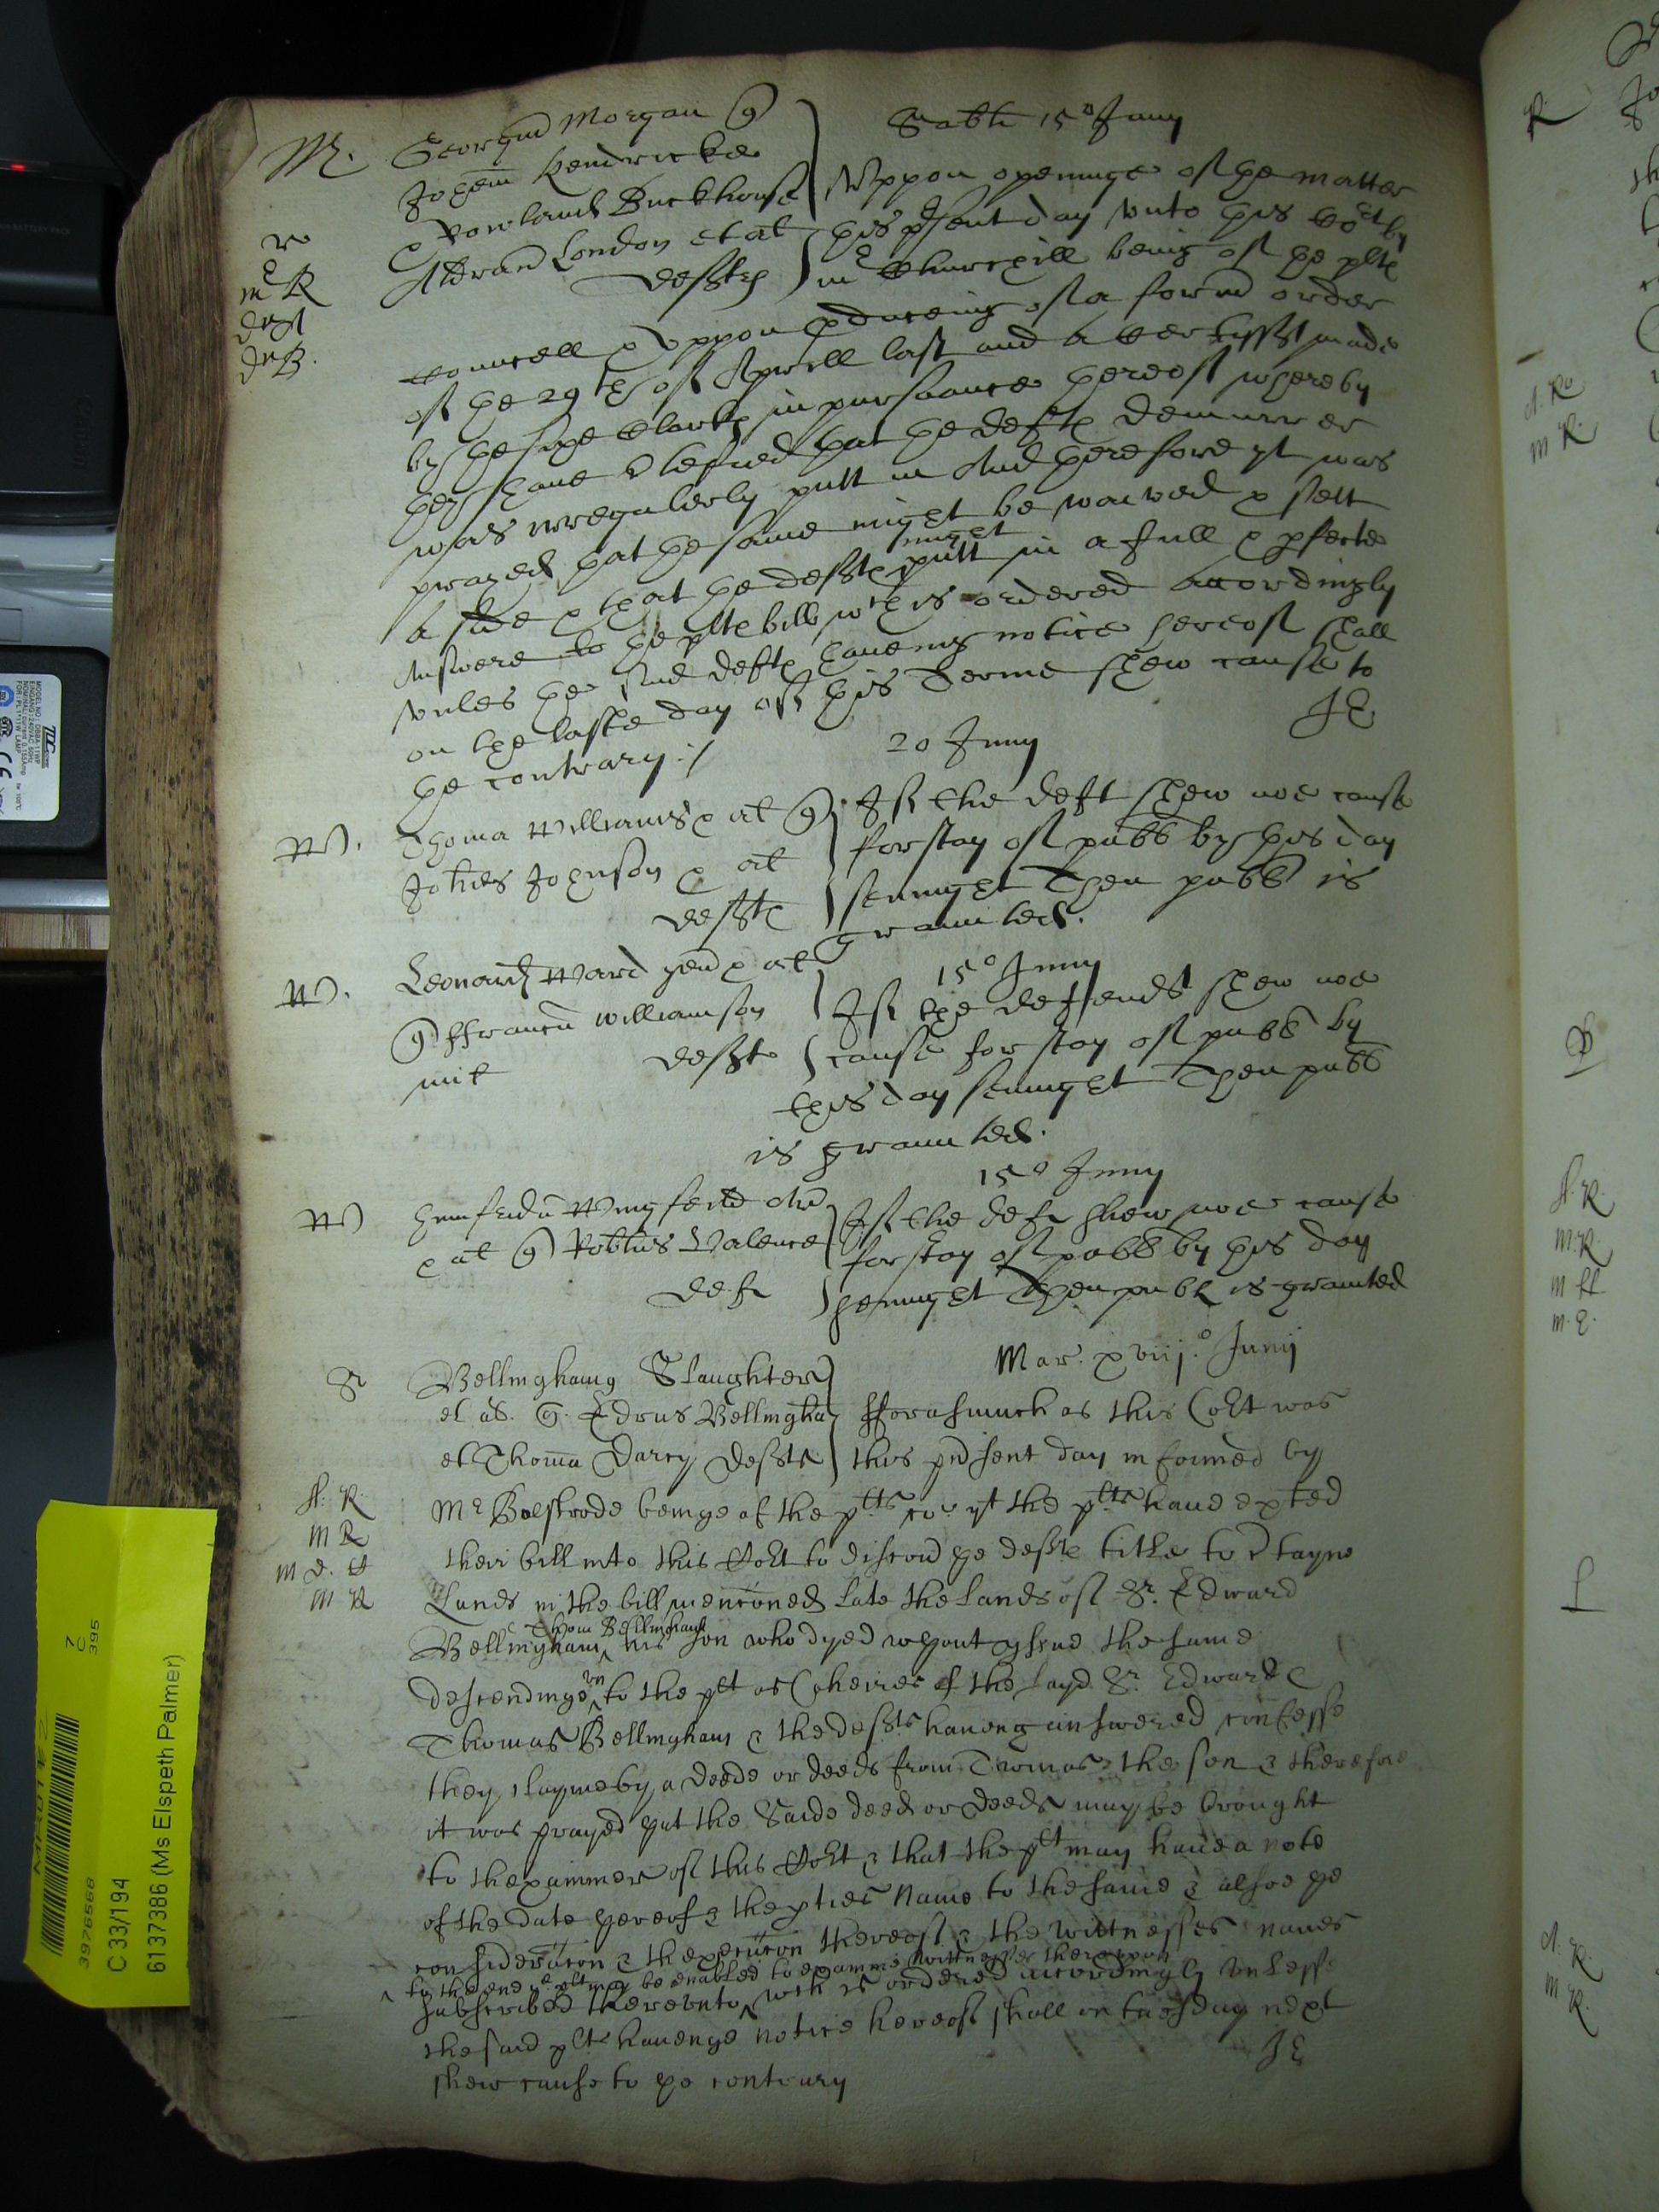 M. Georgiu Morgan q
Johem Kendricke
& Rowland Buckhouse
Aldran London et al
defts
Sabti 15º Junij
Uppon openinge of the matter
this psent day unto this Cort by
mr Churchill being of the plts
councell & uppon pduceing of a form order
of the 29th of Aprill last and a certifft made
by the sixe Clarks in pursuance thereof whereby
they have Certified that the defts demurrer
was irregulerly putt in And therefore yt was
prayed that the same might be waived & sett
aside & that the defts might putt in a full & pfecte
Answere to the plts bill wch is ordered accordingly
unles the said defts haveing notice hereof shall
on the laste day of this Terme shew cause to
the contrary ./
JE
20 Junij
W. Thoma Williams & al q
Johes Johnson & al
defts
If the deft shew noe cause
for stay of publ by this day
sennight Then publ is
graunted.
W. Leonard Ward gen & al
q ffrancu Williamson
mil defts
15º Junij
If the defends shew noe
cause for stay of publ by
this day sennight Then publ
is graunted.
W Humfridu Wingfeild
& al q Robtus Valence
deft
15º Junij
If the deft shew noe cause
for stay of publ by this day
sennight Then publ is graunted
Mar. xviij.º Junij
S Bellingham Slaughter
et al. q. Edrus Bellingham
et Thoma Darcy Defts
fforasmuch as this Cort was
this present day informed by
Mr Bolstrode beinge of the plts co. yt the plts have exted
their bill into this Cort to discov ye defts title to Ctayne
Lands in the bill menconed late the lands of Sr. Edward
Bellingham & Thom Bellingham his son who dyed wthout yssue the same
descendinge vnto the plt as Coheires of the sayd Sr. Edward &
Thomas Bellingham & the defts having answered confesse
they clayme by a deede or deeds from Thomas the son & therefore
it was prayed that the Saide deed or deeds may be brought
to thexaminer of this Cort & that the plt may have a note
of the date thereof & the pties name to the same & alsoe ye
consideracon & thexecucon thereof & the wittnesses names
to the end ye plt may be enabled to examine wittnesses thereupon
subscribed therevnto wch is ordered accordingly vnlesse
the said plts havenge notice hereof shall on tuesday next
shew cause to ye contrary
JE
C 33/194
61137386 (Ms Elspeth Palmer)
3976568